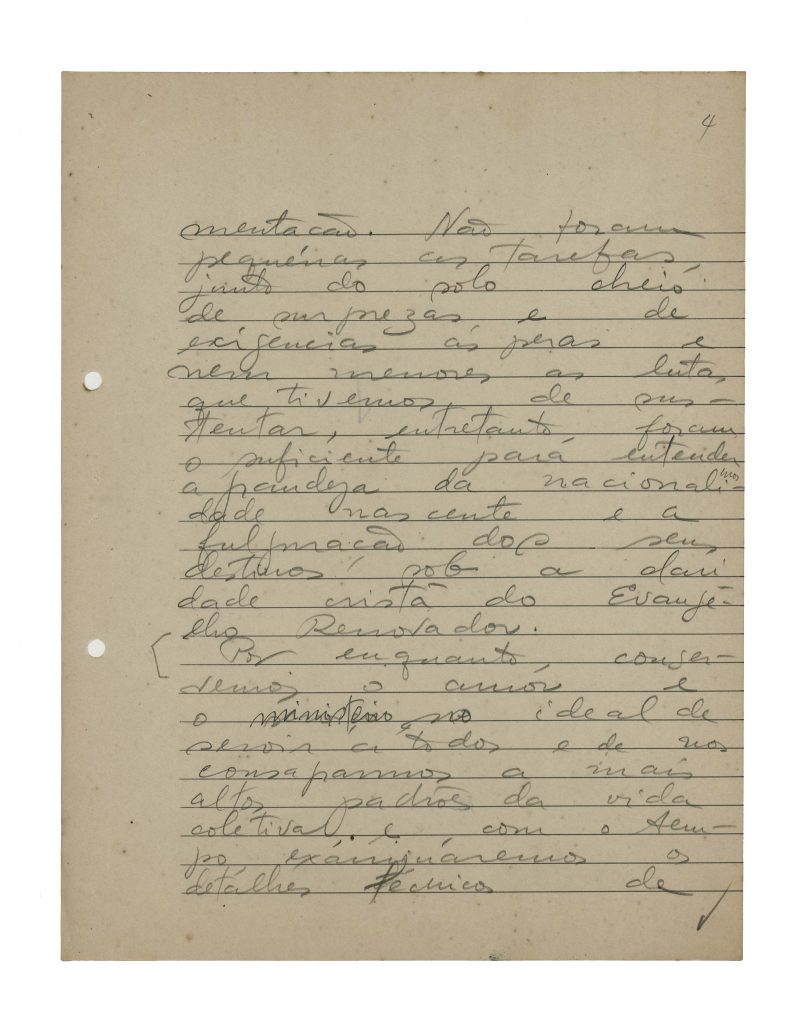 4
mentação. Não foram
pequénas as tarefas,
junto do solo cheio
de surprezas e de
exigencias ásperas e
nem menores as lutas
que tivemos, de sus-
tentar, entretanto, foram
o suficiente pará entender
mos
a grandeza da nacionali-
dade nascente e a
fulguração dos seus
destinos, sob a clari
dade cristã do Evangé-
lho Renovador.
Por enquanto, conser-
vemos o amôr e
o ministério no ideal de
servir a todos e de nos
consagrarmos a mais
altos padrões da vida
coletiva e com o tem-
po exámináremos os
detalhes técnicos de